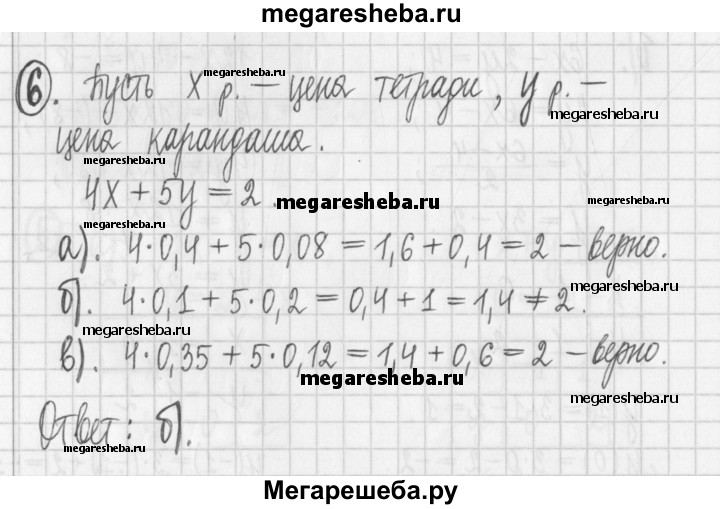 megaresheba.ru
6. Пусть x р. — цена тетради, y р. —
megaresheba.ru
цена карандаша.
megaresheba.ru
4x + 5y = 2.
megaresheba.ru
megaresheba.ru
а). 4·0,4 + 5·0,08 = 1,6 + 0,4 = 2 – верно.
б). 4·0,1 + 5·0,2 = 0,4 + 1 = 1,4 ≠ 2.
megaresheba.ru
megaresheba.ru
в). 4·0,35 + 5·0,12 = 1,4 + 0,6 = 2 – верно.
megaresheba.ru
megaresheba.ru
Ответ: б).
megaresheba.ru
Мегарешеба.ру